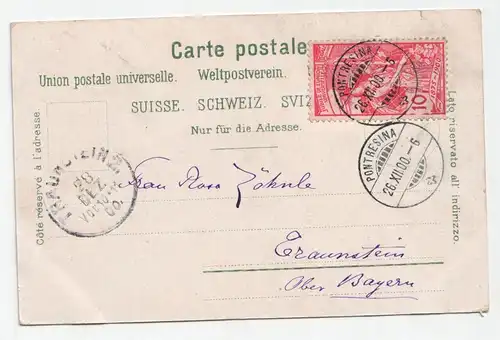 Carte postale
Union postale universelle. Weltpostverein.
SUISSE. SCHWEIZ. SVIZ
Nur für die Adresse.
Côté réservé à l'adresse
Lato riservato all' indirizzo.
PONTRESINA
26.XII.00.-6
10
PONTRESINA
26.XII.00.-6
TRAUNSTEIN
DEZ.
00.
Frau Rosa
Traunstein
Ober Bayern